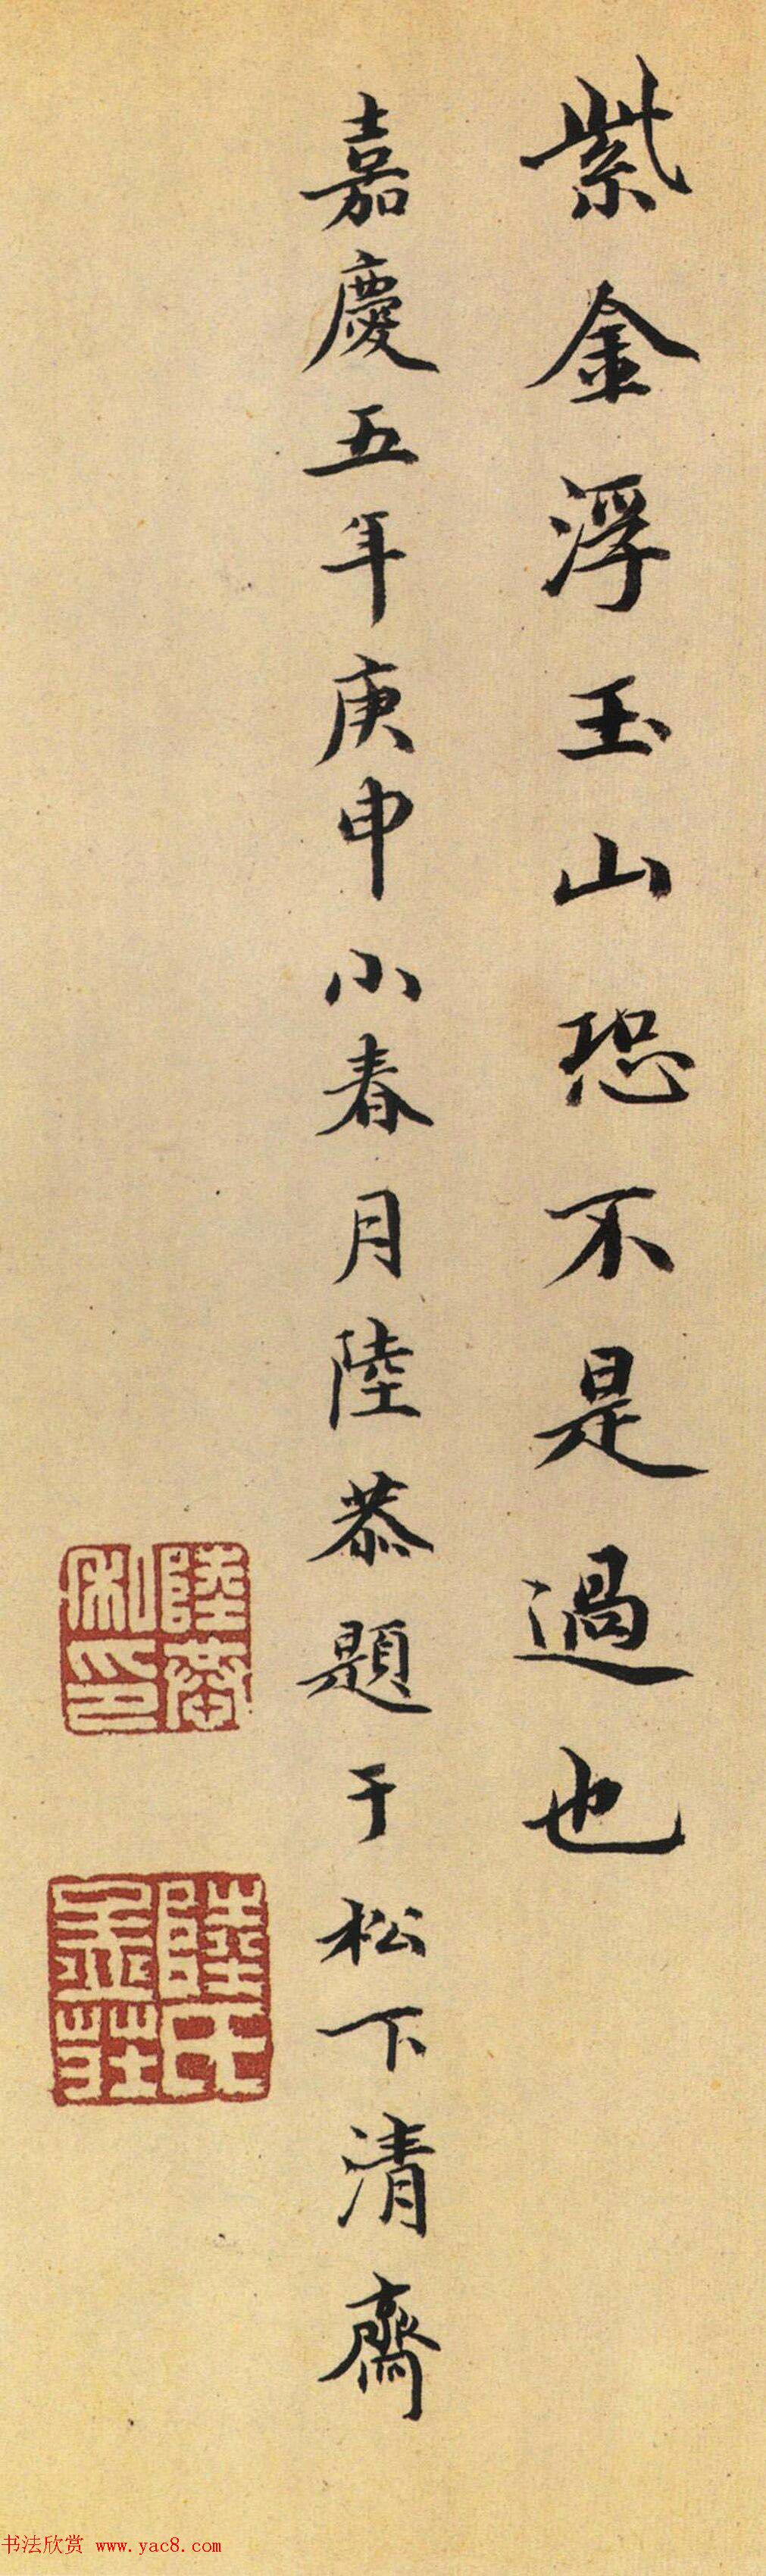 紫金浮玉山恐不是過也
嘉慶五年庚申小春月陸恭題于松下清齋
陸恭私印
陸氏
书法欣赏 www.yac8.com